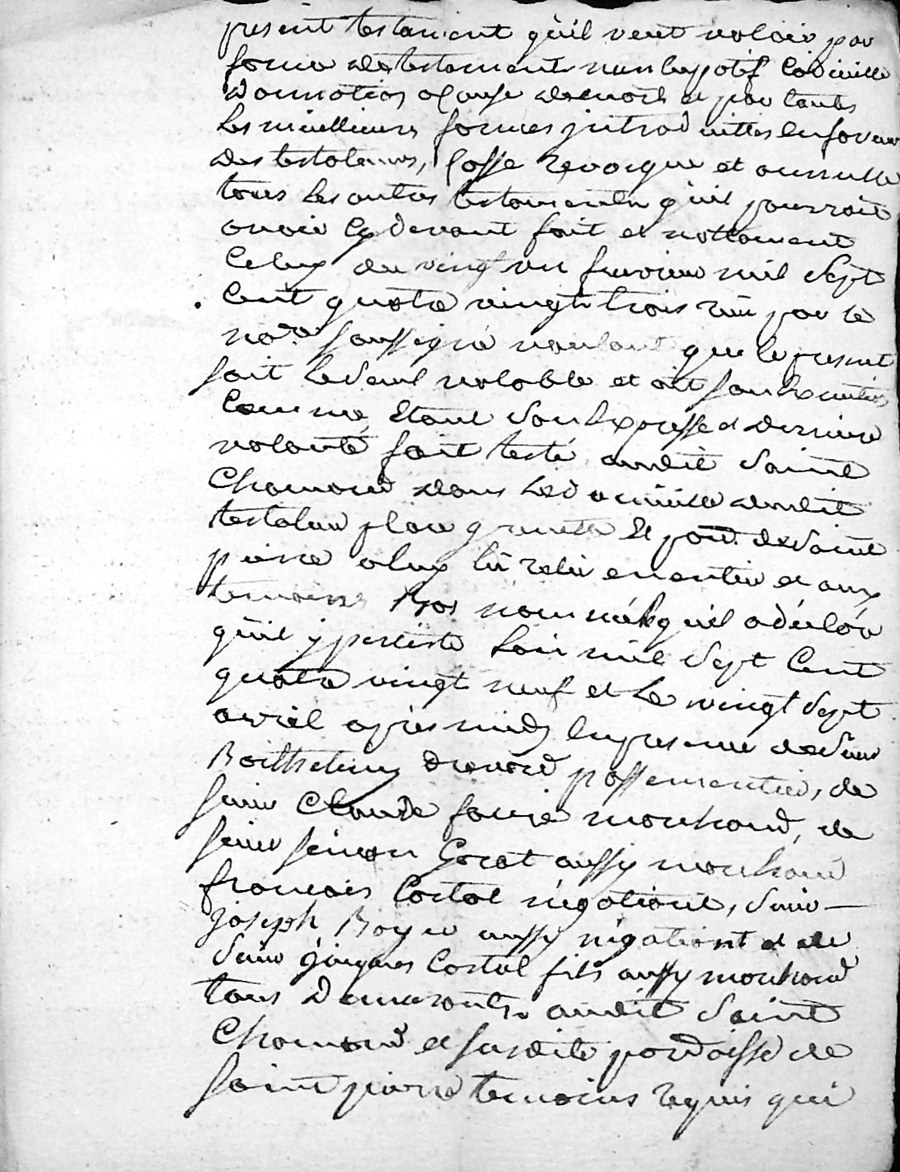 present testament qu'il veut valoir par
forme de testament nuncupatif codicille
donnation a cause de mort et par toutes
les meillieures formes introduittes en faveur
des testateurs, Casse revoque et annulle
tous les autres testaments qu'il pourroit
avoir cy devant fait et nottament
celuy du vingt un fevrier mil sept
cent quatre vingt trois reçu par le
nore soussigné voulant que le present
soit le seul valable et ait son Execution
comme Etant son Expresse et derniere
volonté fait testé audit Saint
Chamond dans le domicille dudit
testateur place grenette et parr. de Saint
pierre a luy lû relu en entier et aux
temoins bas nommés qu'il a déclaré
qu'il y persiste L'an mil Sept Cent
quatre vingt neuf et le vingt Sept
avril apres midy en presence de Sieur
Barthelemy drevard passementier, de
sieur Claude faure marchand, de
sieur simon Gorat aussy marchand
francois Costal négotiant, Sieur
joseph Boyer aussy négotiant et de
Sieur jacques Costal fils aussy marchand
tous demeurants audit Saint
Chamond et susdite parroisse de
saint pierre temoins requis qui